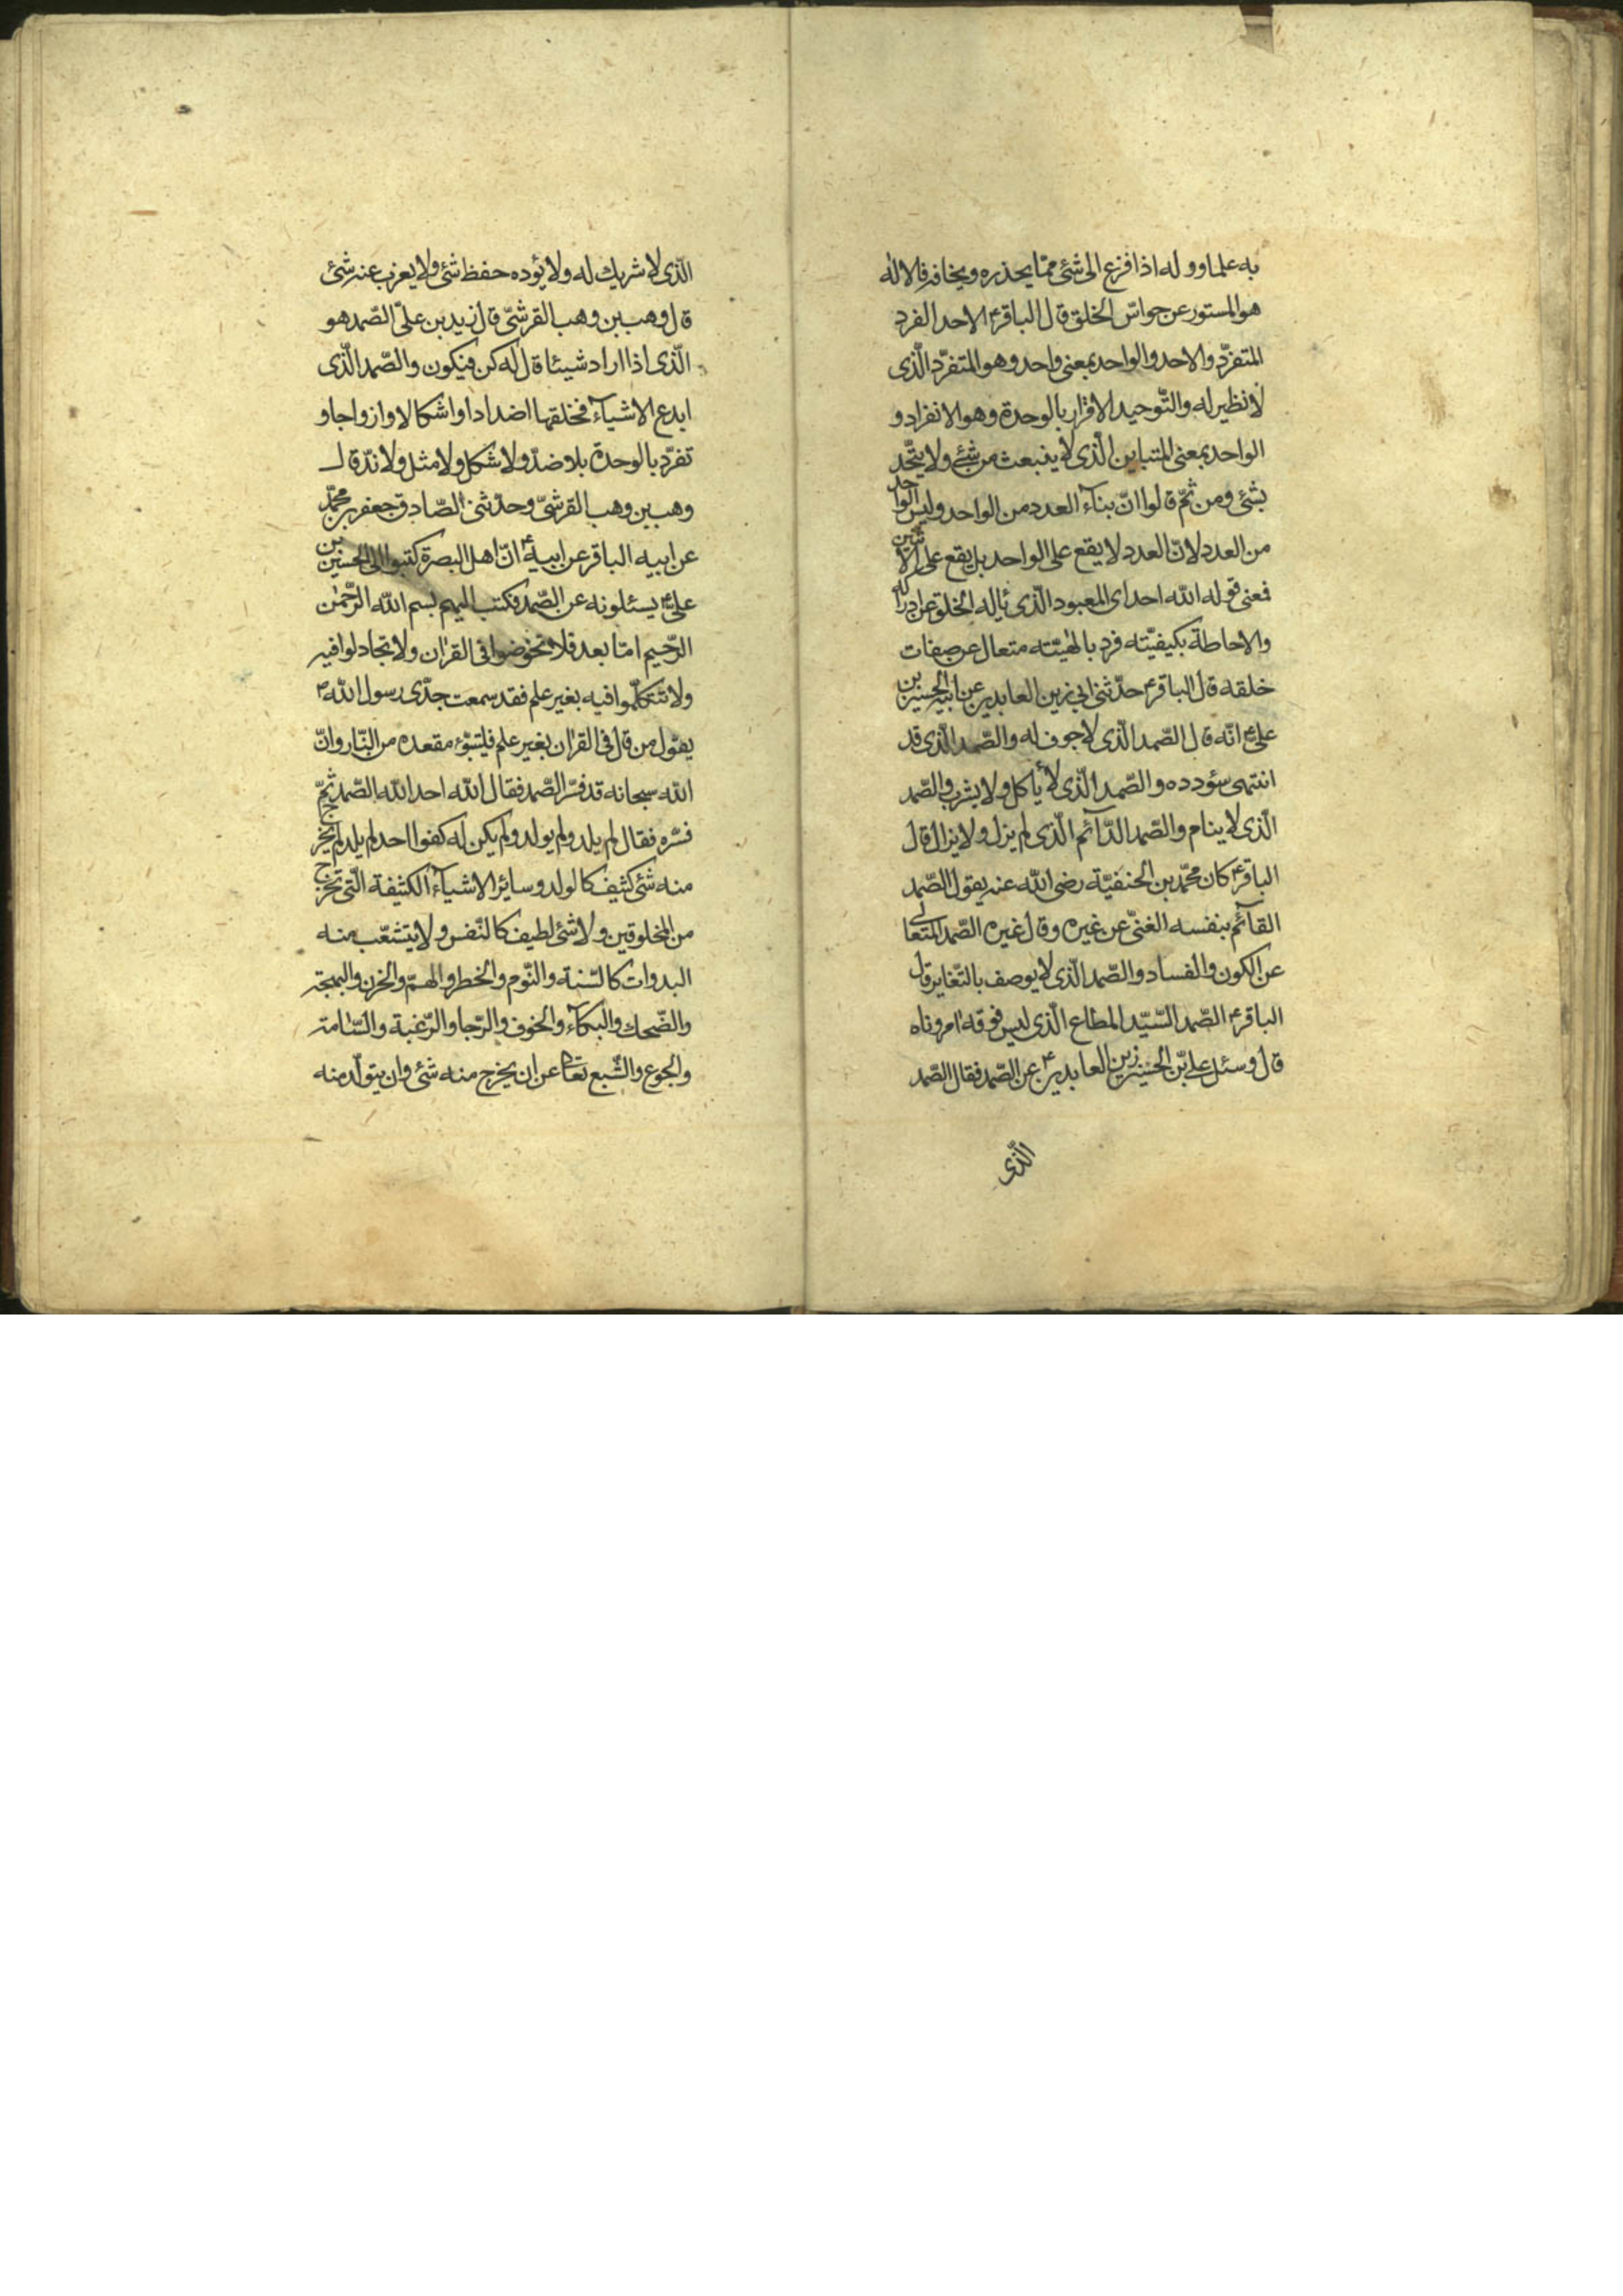 به علما ووله اذا فزع الى شئ ممّا يحذره ويخافه فالاله
هو المستور عن حواسّ الخلق قال الباقر ع الاحد الفرد
المتفرّد والاحد والواحد بمعنى واحد وهو المتفرّد الّذى
لا نظير له والتّوحيد الاقرار بالوحدة وهو الانفراد و
الواحد بمعنى المتباين الّذى لا ينبعث من شئ ولا يتّحد
بشئ ومن ثمّ قالوا انّ بناء العدد من الواحد وليس الواحد
من العدد لانّ العدد لا يقع على الواحد بل يقع على الاثنين
فمعنى قوله الله احد اى المعبود الّذى ياله الخلق عن ادراكه
والاحاطة بكيفيّته فرد بالهيّته متعال عن صفات
خلقه قال الباقر ع حدّثنى ابى زين العابدين عن ابيه الحسين بن
على ع انّه قال الصّمد الّذى لا جوف له والصّمد الّذى قد
انتهى سؤدده والصّمد الّذى لا يأكل ولا يشرب والصّمد
الّذى لا ينام والصّمد الدّآئم الّذى لم يزل ولا يزال قال
الباقر ع كان محمّد بن الحنفيّة رضى الله عنه يقول الصّمد
القآئم بنفسه الغنىّ عن غيره وقال غيره الصّمد المتعالى
عن الكون والفساد والصّمد الّذى لا يوصف بالتّغاير قال
الباقر ع الصّمد السّيّد المطاع الّذى ليس فوقه امر وناه
قال وسئل على بن الحسين زين العابدين ع عن الصّمد فقال الصّمد
الّذى
الّذى لا شريك له ولا يؤده حفظ شئ ولا يعزب عنه شئ
قال وهب بن وهب القرشىّ قال زيد بن علىّ الصّمد هو
الّذى اذا اراد شيئا قال له كن فيكون والصّمد الّذى
ابدع الاشيآء فخلقها اضدادا واشكالا وازواجا و
تفرّد بالوحدة بلا ضدّ ولا شكل ولا مثل ولا ندّ قال
وهب بن وهب القرشىّ وحدّثنى الصّادق جعفر بن محمّد
عن ابيه الباقر عن ابيه ع انّ اهل البصرة كتبوا الى الحسين بن
على ع يسئلونه عن الصّمد فكتب اليهم بسم الله الرّحمن
الرّحيم امّا بعد فلا تخوضوا فى القران ولا تجادلوا فيه
ولا تتكلّموا فيه بغير علم فقد سمعت جدّى رسول الله ص
يقول من قال فى القران بغير علم فليتبوّء مقعده من النّار وانّ
الله سبحانه قد فسّر الصّمد فقال الله احد الله الصّمد ثمّ
فسّره فقال لم يلد ولم يولد ولم يكن له كفوا احد لم يلد لم يخرج
منه شئ كثيف كالولد وسائر الاشيآء الكثيفة الّتى تخرج
من المخلوقين ولا شئ لطيف كالنّفس ولا يتشعّب منه
البدوات كالسّنة والنّوم والخطر والهمّ والحزن والبهجة
والضّحك والبكآء والخوف والرّجا والرّغبة والسّامة
والجوع والشّبع تعالى عن ان يخرج منه شئ وان يتولّد منه